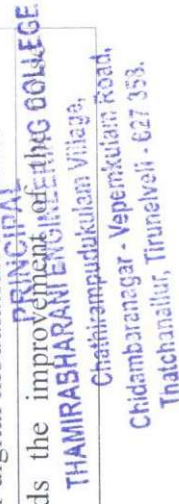 ds the improvement of the
PRINCIPAL
THAMIRABHARANI ENGINEERING COLLEGE
Chathirampudukulam Village,
Chidambaranagar - Vepemkulam Road,
Thatchanallur, Tirunelveli - 627 358.